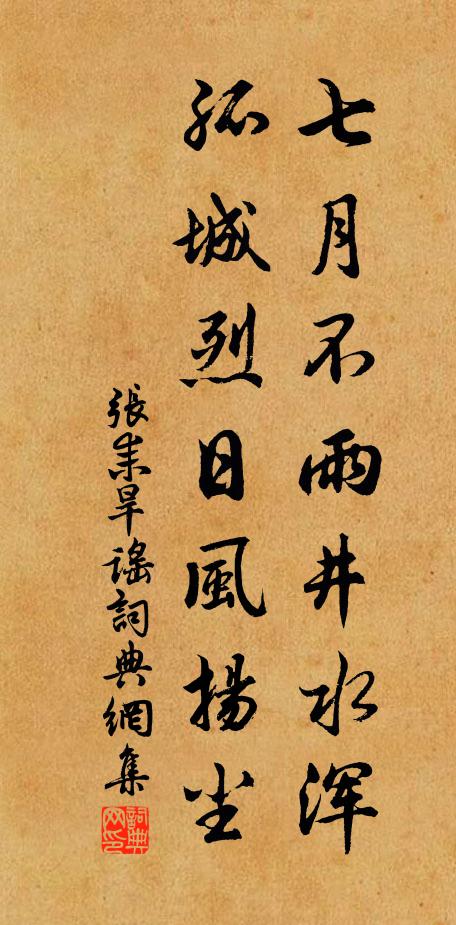 七月不雨井水浑
孤城烈日風揚尘
張耒旱謠詞典網集
詞典网印